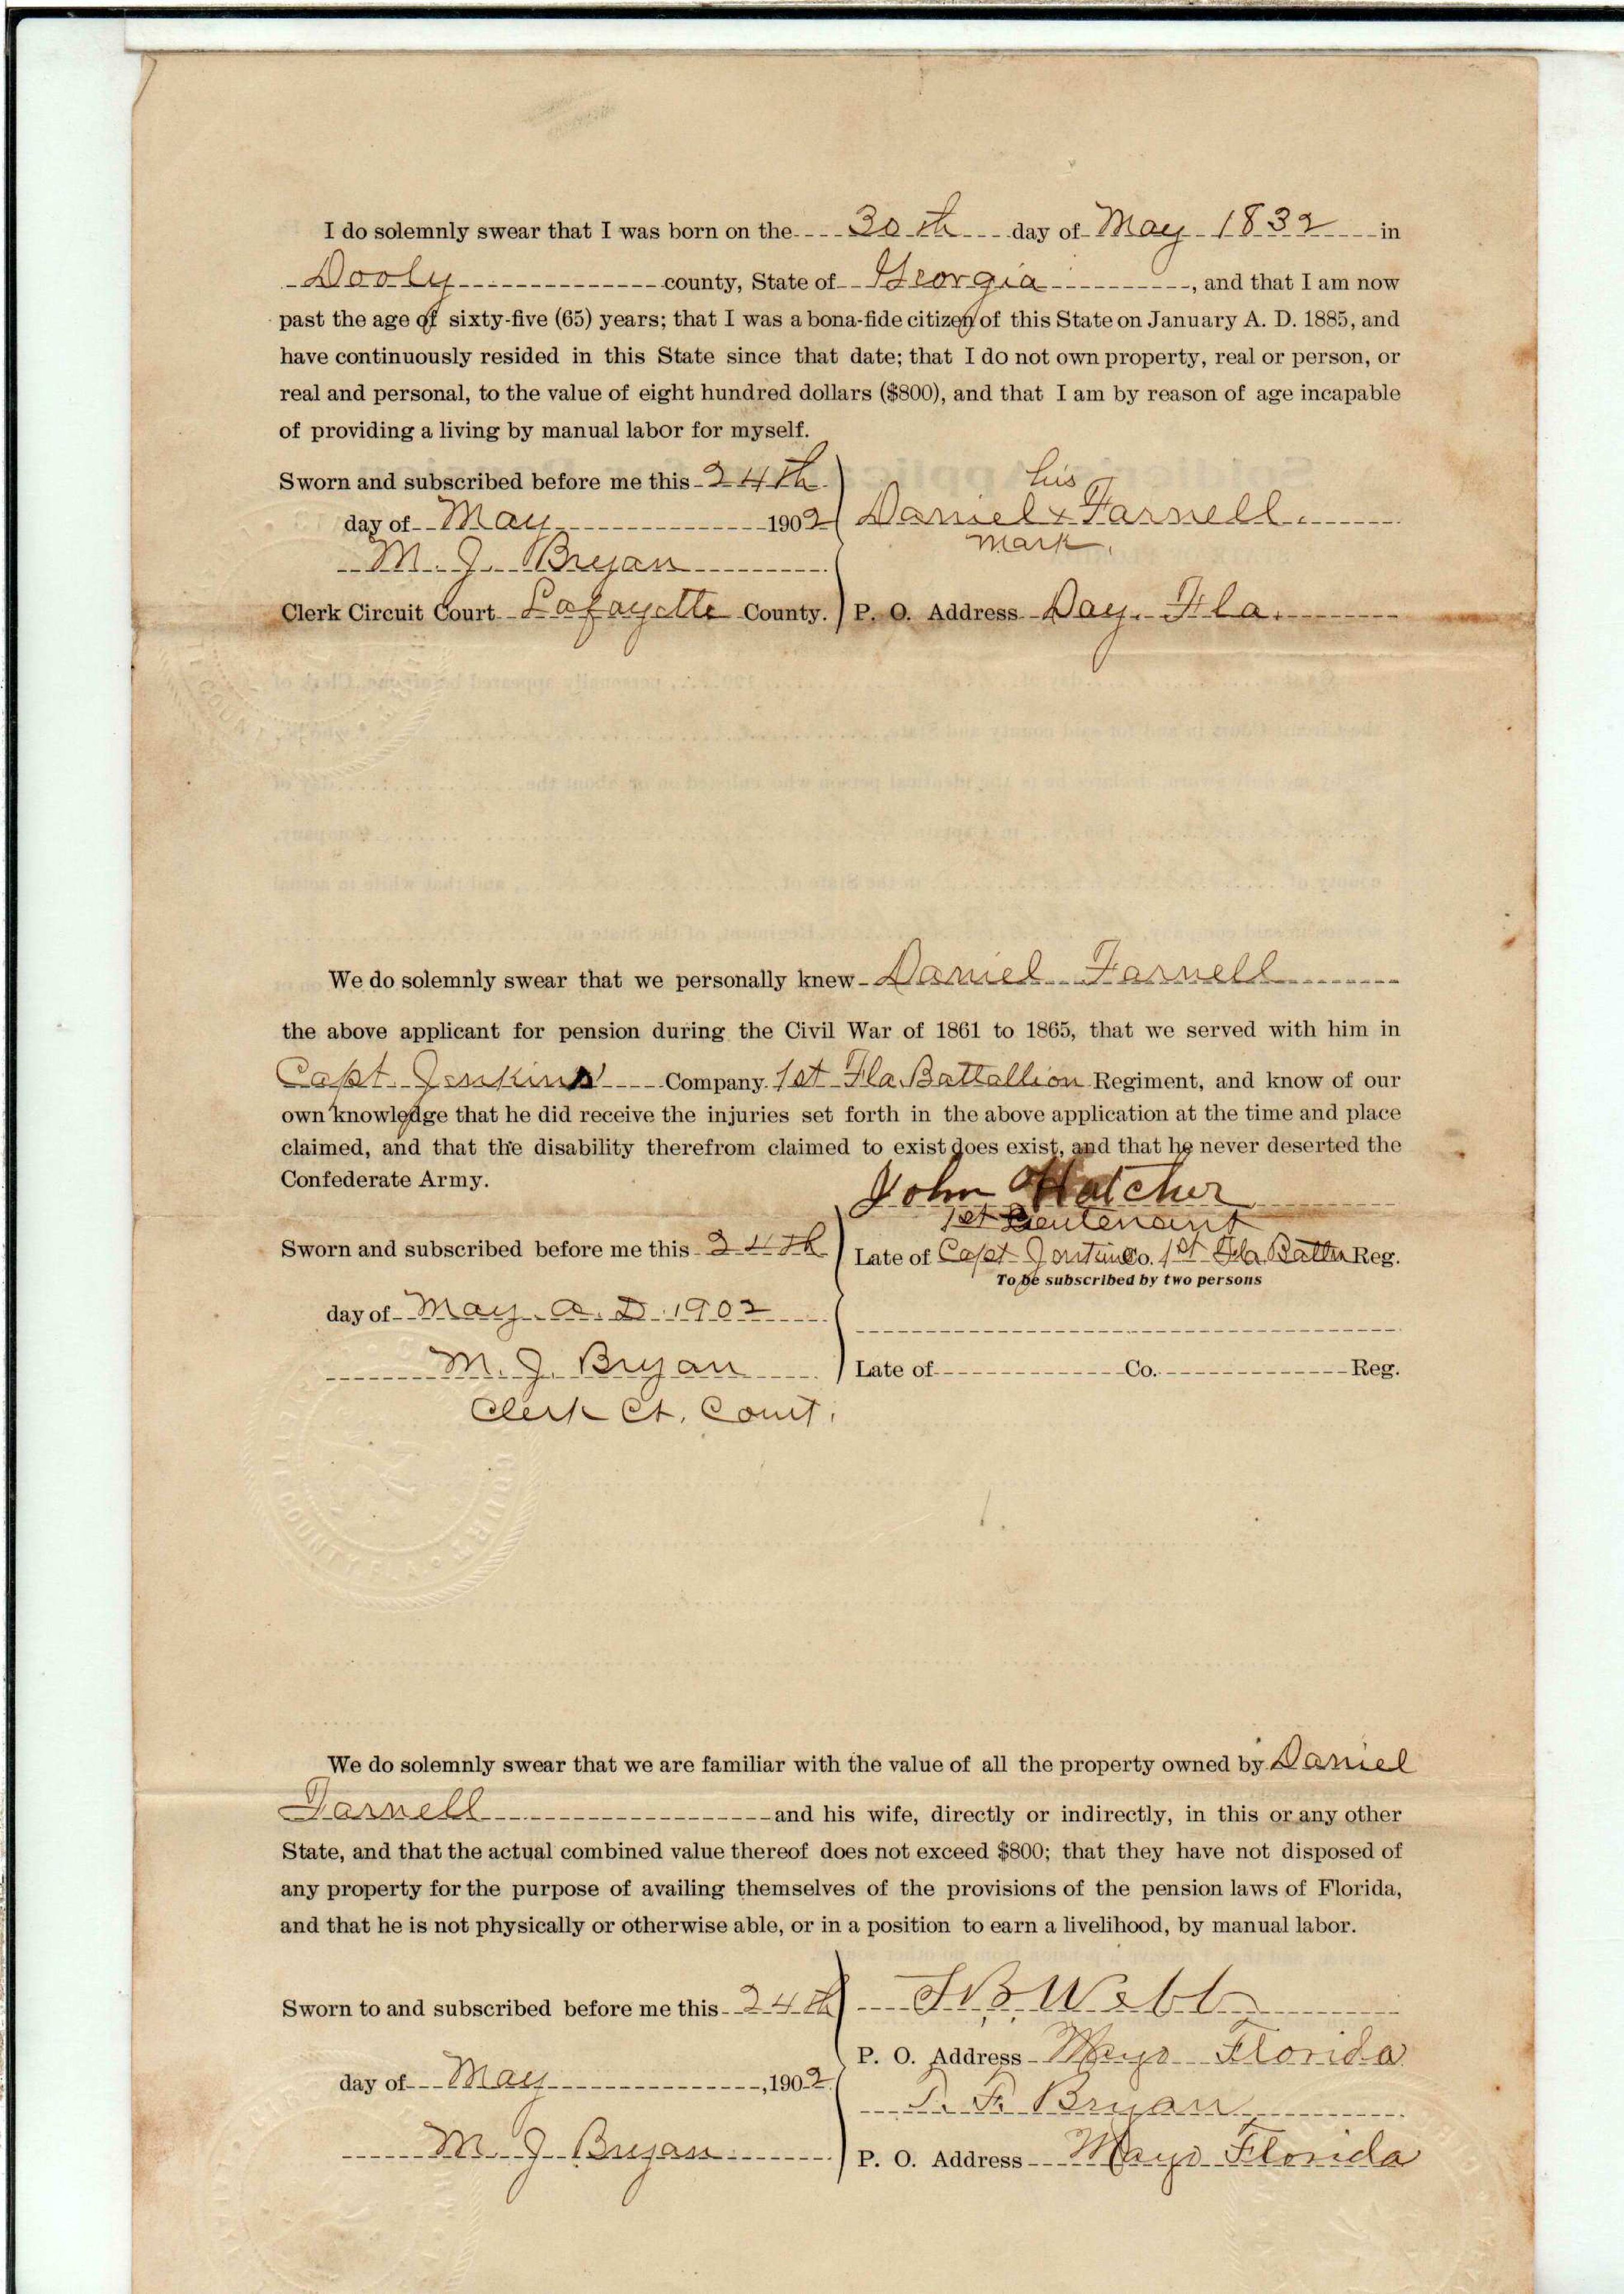 I do solemnly swear that I was born on the 30th day of May 1832 in
Dooly county, State of Georgia, and that I am now
past the age of sixty-five (65) years; that I was a bona-fide citizen of this State on January A. D. 1885, and
have continuously resided in this State since that date; that I do not own property, real or person, or
real and personal, to the value of eight hundred dollars ($800), and that I am by reason of age incapable
of providing a living by manual labor for myself.
Sworn and subscribed before me this 24th
day of May 1902
M. J. Bryan
Clerk Circuit Court Lafayette County.
his
Daniel x Farnell.
mark.
P. O. Address Day. Fla.
We do solemnly swear that we personally knew Daniel Farnell
the above applicant for pension during the Civil War of 1861 to 1865, that we served with him in
Capt Jenkins Company 1st Fla. Battallion Regiment, and know of our
own knowledge that he did receive the injuries set forth in the above application at the time and place
claimed, and that the disability therefrom claimed to exist does exist, and that he never deserted the
Confederate Army.
John Hatcher
1st Lieutenant
Sworn and subscribed before me this 24th
day of May A. D. 1902
M. J. Bryan
Clerk Ct. Court.
Late of Capt Co. 1st Fla. Reg.
To be subscribed by two persons
Late of Co. Reg.
We do solemnly swear that we are familiar with the value of all the property owned by Daniel
Farnell and his wife, directly or indirectly, in this or any other
State, and that the actual combined value thereof does not exceed $800; that they have not disposed of
any property for the purpose of availing themselves of the provisions of the pension laws of Florida,
and that he is not physically or otherwise able, or in a position to earn a livelihood, by manual labor.
Sworn to and subscribed before me this 24th
day of May, 1902
M. J. Bryan
Webb
P. O. Address Mayo Florida
Bryan
P. O. Address Mayo Florida